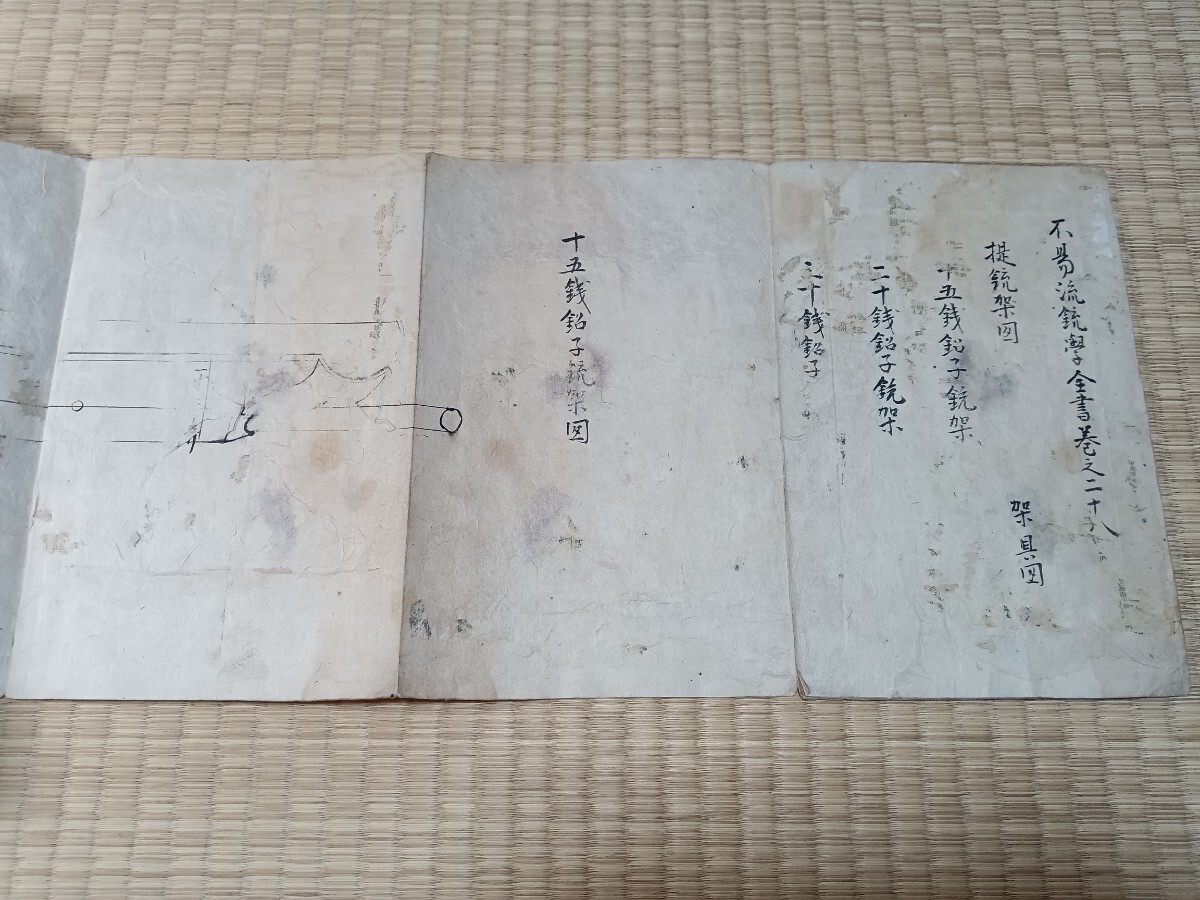 不易流銃學全書巻之二十八
架具図
提銃架図
十五銭鉛子銃架
二十銭鉛子銃架
三十銭鉛子
十五銭鉛子銃架図